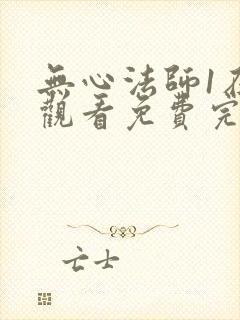 無心法師1在
觀看免費完
亡士